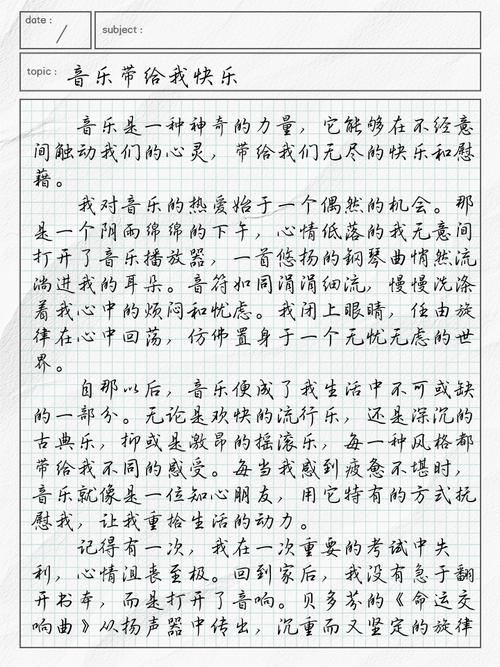 date :
subject :
topic : 音乐带给我快乐
音乐是一种神奇的力量，它能够在不经意
间触动我们的心灵，带给我们无尽的快乐和慰
藉。
我对音乐的热爱始于一个偶然的机会。那
是一个阴雨绵绵的下午，心情低落的我无意间
打开了音乐播放器，一首悠扬的钢琴曲悄然流
淌进我的耳朵。音符如同涓涓细流，慢慢洗涤
着我心中的烦闷和忧虑。我闭上眼睛，任由旋
律在心中回荡，仿佛置身于一个无忧无虑的世
界。
自那以后，音乐便成了我生活中不可或缺
的一部分。无论是欢快的流行乐，还是深沉的
古典乐，抑或是激昂的摇滚乐，每一种风格都
带给我不同的感受。每当我感到疲惫不堪时，
音乐就像是一位知心朋友，用它特有的方式抚
慰我，让我重拾生活的动力。
记得有一次，我在一次重要的考试中失
利，心情沮丧至极。回到家后，我没有急于翻
开书本，而是打开了音响。贝多芬的《命运交
响曲》从扬声器中传出，沉重而又坚定的旋律